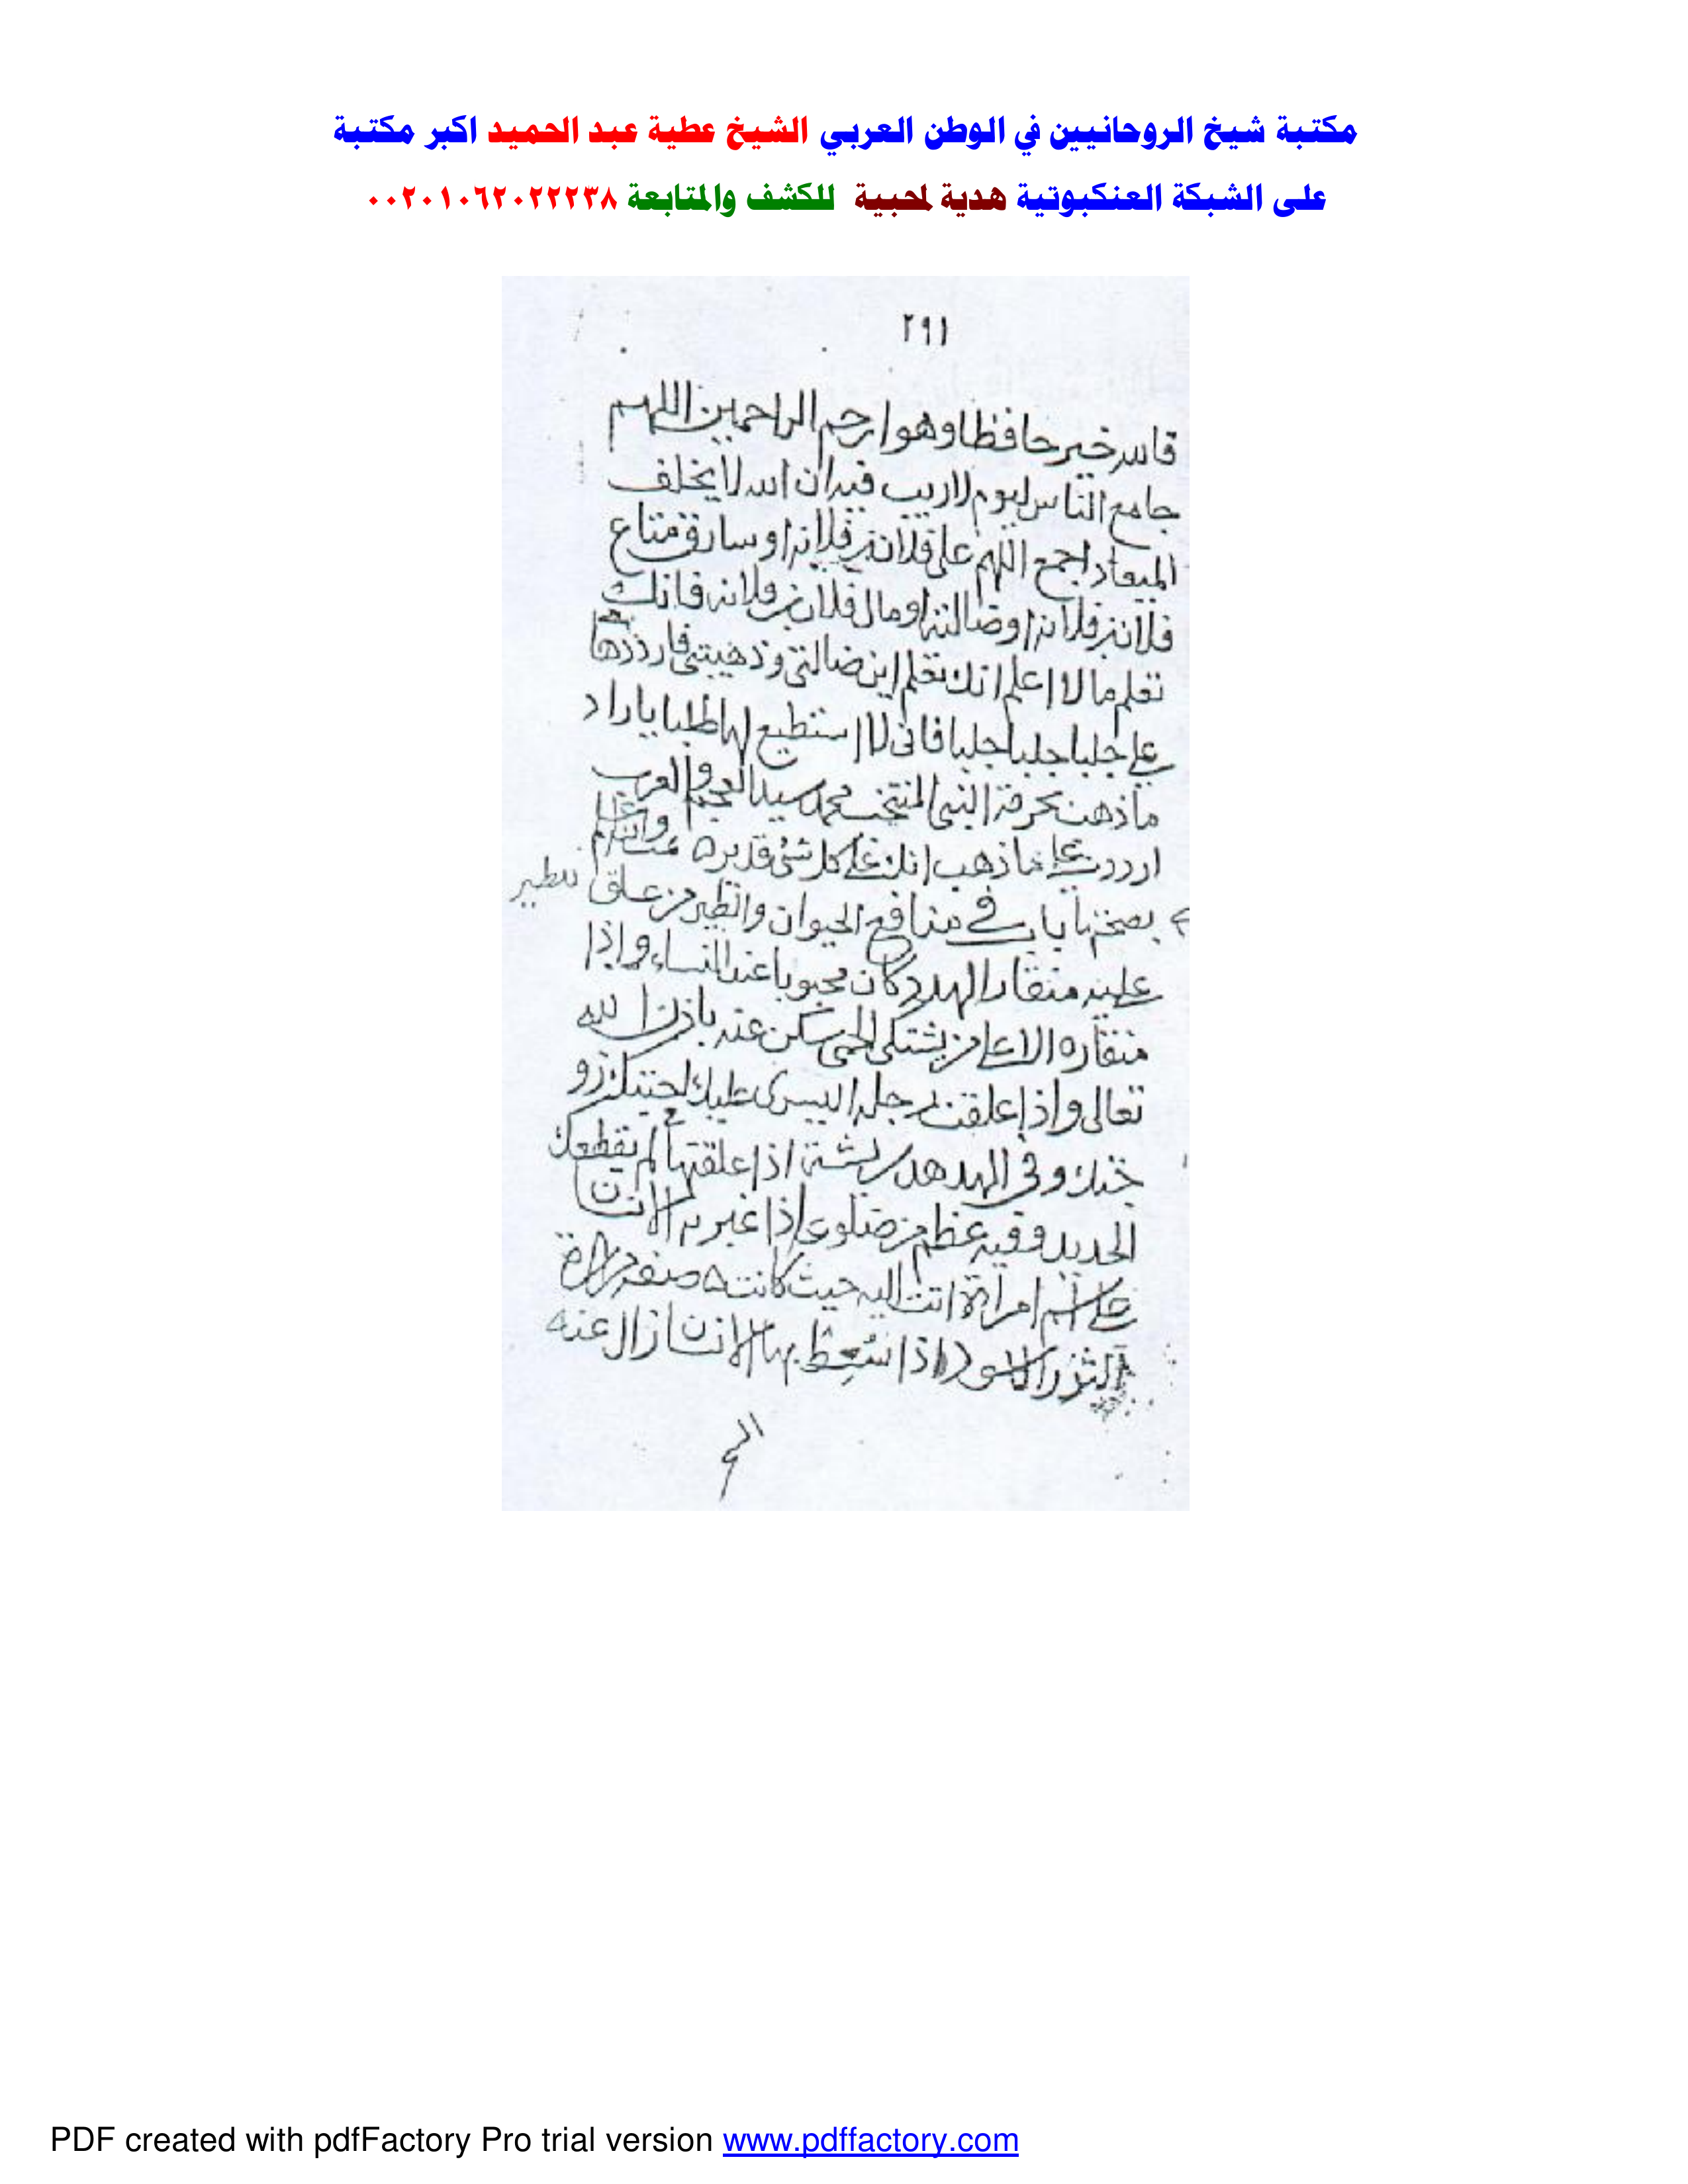 مكتبة شيخ الروحانيين في الوطن العربي الشيخ عطية عبد الحميد اكبر مكتبة
على الشبكة العنكبوتية هدية لمحبية للكشف والمتابعة ٠٠٢٠١٠٦٢٠٢٢٢٣٨
٢٩١
فالله خير حافظا وهو ارحم الراحمين اللهم
جامع الناس ليوم لا ريب فيه ان الله لا يخلف
الميعاد اجمع اللهم على فلان بن فلانه او سارق متاع
فلان بن فلانه او ضالته او مال فلان بن فلانه فانك
تعلم مالا اعلم انك تعلم اين ضالتى وذهيبتى فارددها
على جلبا جلبا جلبا فانى لا استطيع لها طلبا ياراد
ماذهب بحرمة النبى المنتخب محمد سيد العجم والعرب
اردد على ماذهب انك على كل شئ قدير ٥ تمت
باب فى منافع الحيوان والطير من علق للطير
عليه منقار الهدهد كان محبوبا عند النساء واذا
منقاره الاعلى من يشتكى الحمى سكن عنه باذن الله
تعالى واذا علقت رجله اليسرى عليك
وفى الهدهد ريشة اذا علقتها لم يقطعك
الحديد وفيه عظم من ضلوعه اذا
على اسم امراة اتت اليه حيث كانت ٥ صفة مرارة
الثور الاسود اذا سعط بها الانسان زال عنه